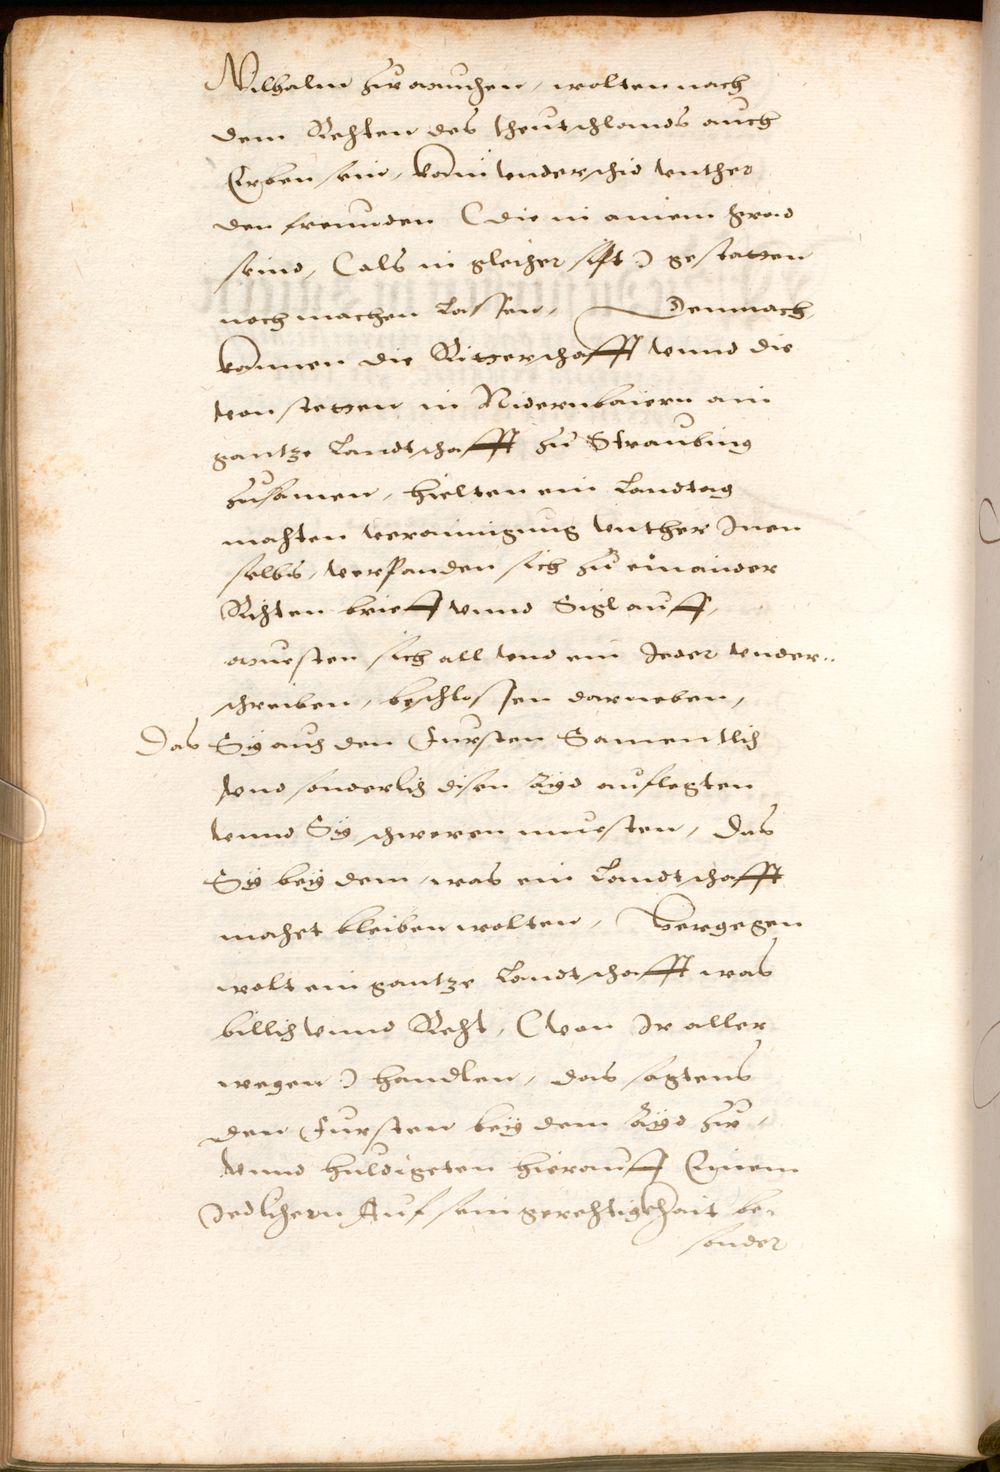 Wilhalm hervancken, wolten nach
dem Rechten des theutschlands auch
Erben sein, kain underschid unther
den freunden (die in ainem grad
seind, (als in gleicher sipt) gestatten
noch machen lassen, Demnach
kamen die Ritterschafft unnd die
von stetten in Nidernbaiern ain
gantze landtschafft zu Straubing
zusamen, hielten ein landtag
machten verainigung unther Inen
selbs, verpanden sich zu einander
Richten brieff unnd Sigl auff,
muesten sich all und ein Ieder under-
schreiben, beschlossen darneben,
Das Sy auch den Fursten Samentlich
und sonderlich disen Ayd auflegten
unnd Sy schweren muesten, Das
Sy bey dem, was ein landtschafft
machet bleiben wolten, Hergegen
wolt ein gantze landtschafft was
billich unnd Recht, (von Ir aller
wegen) handlen, das sagtens
den Fursten bey dem Ayd zu,
Unnd huldigeten hierauff Einem
Iedlichem Auf sein gerechtigkhait be-
sonder